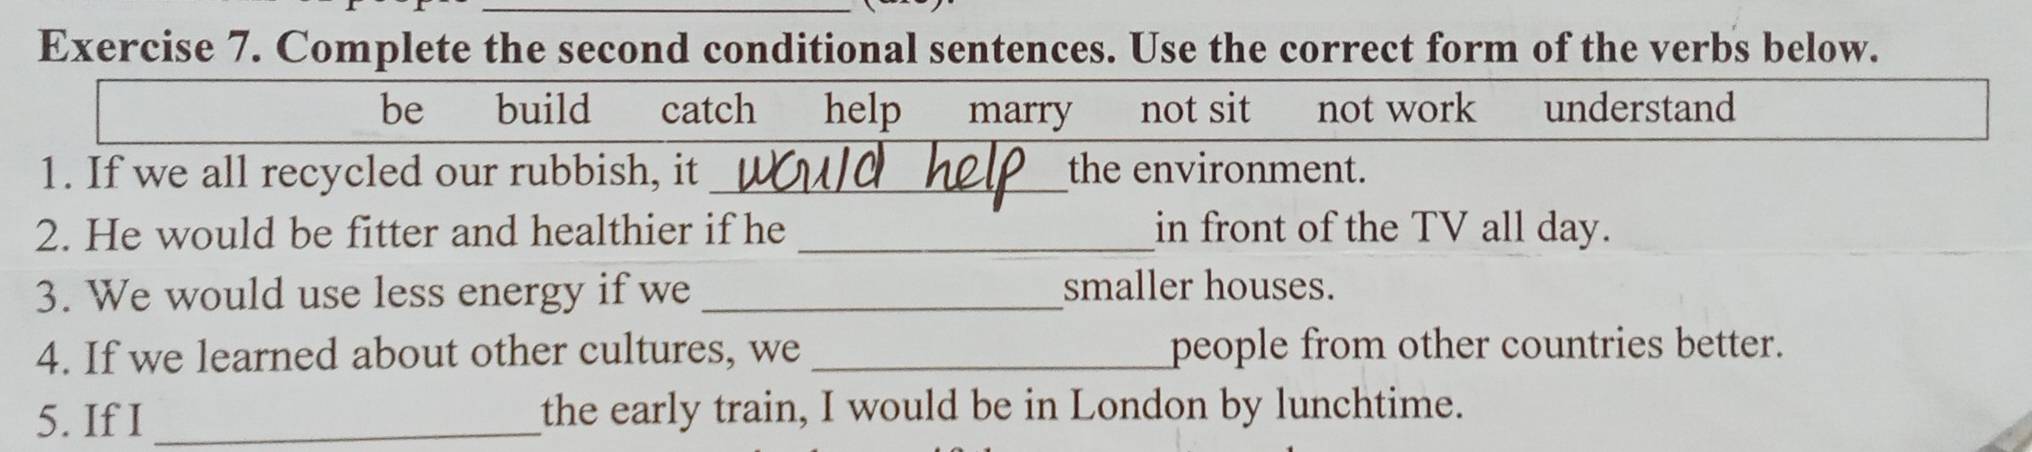 Exercise 7. Complete the second conditional sentences. Use the correct form of the verbs below.
be build catch help marry not sit not work understand
1. If we all recycled our rubbish, it would help the environment.
2. He would be fitter and healthier if he ____________ in front of the TV all day.
3. We would use less energy if we ____________ smaller houses.
4. If we learned about other cultures, we ____________ people from other countries better.
5. If I ____________ the early train, I would be in London by lunchtime.